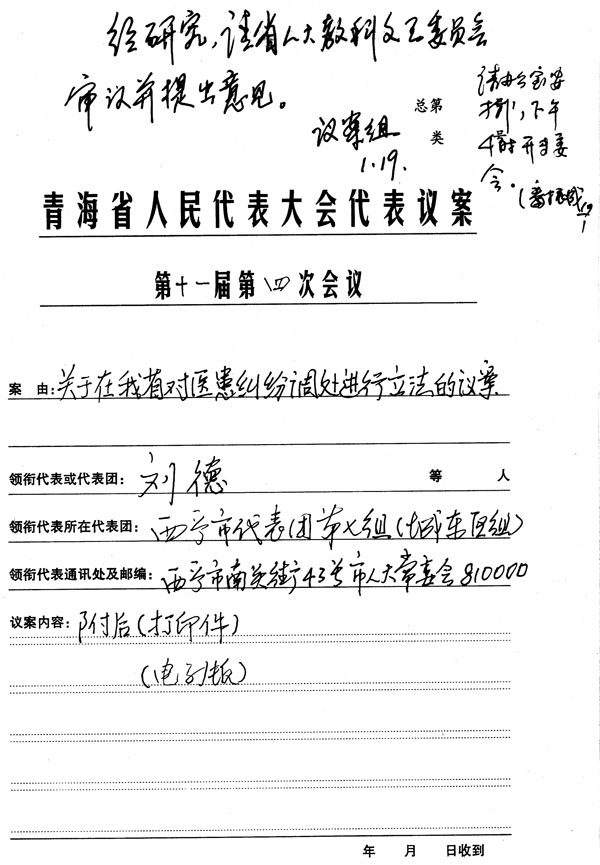 经研究，请省人大教科文卫委员会
审议并提出意见。
议案组
1.19.
总第
类
请办公室安
排，下午
4时开主委
会。
19/1
青海省人民代表大会代表议案
第十一届第四次会议
案 由：关于在我省对医患纠纷调处进行立法的议案
领衔代表或代表团：刘德 等 人
领衔代表所在代表团：西宁市代表团第七组（城东区组）
领衔代表通讯处及邮编：西宁市南关街43号市人大常委会810000
议案内容：附后（打印件）
（电子版）
年 月 日收到